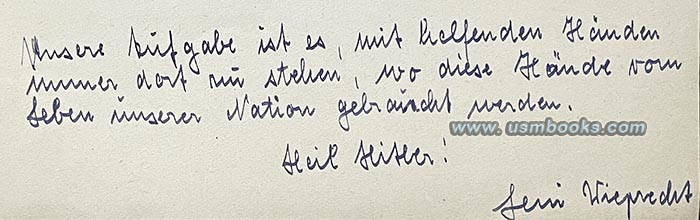 Unsere Aufgabe ist es, mit helfenden Händen
immer dort zu stehen, wo diese Hände vom
Leben unserer Nation gebraucht werden.
www.usmbooks.com
Heil Hitler!
Wieprecht